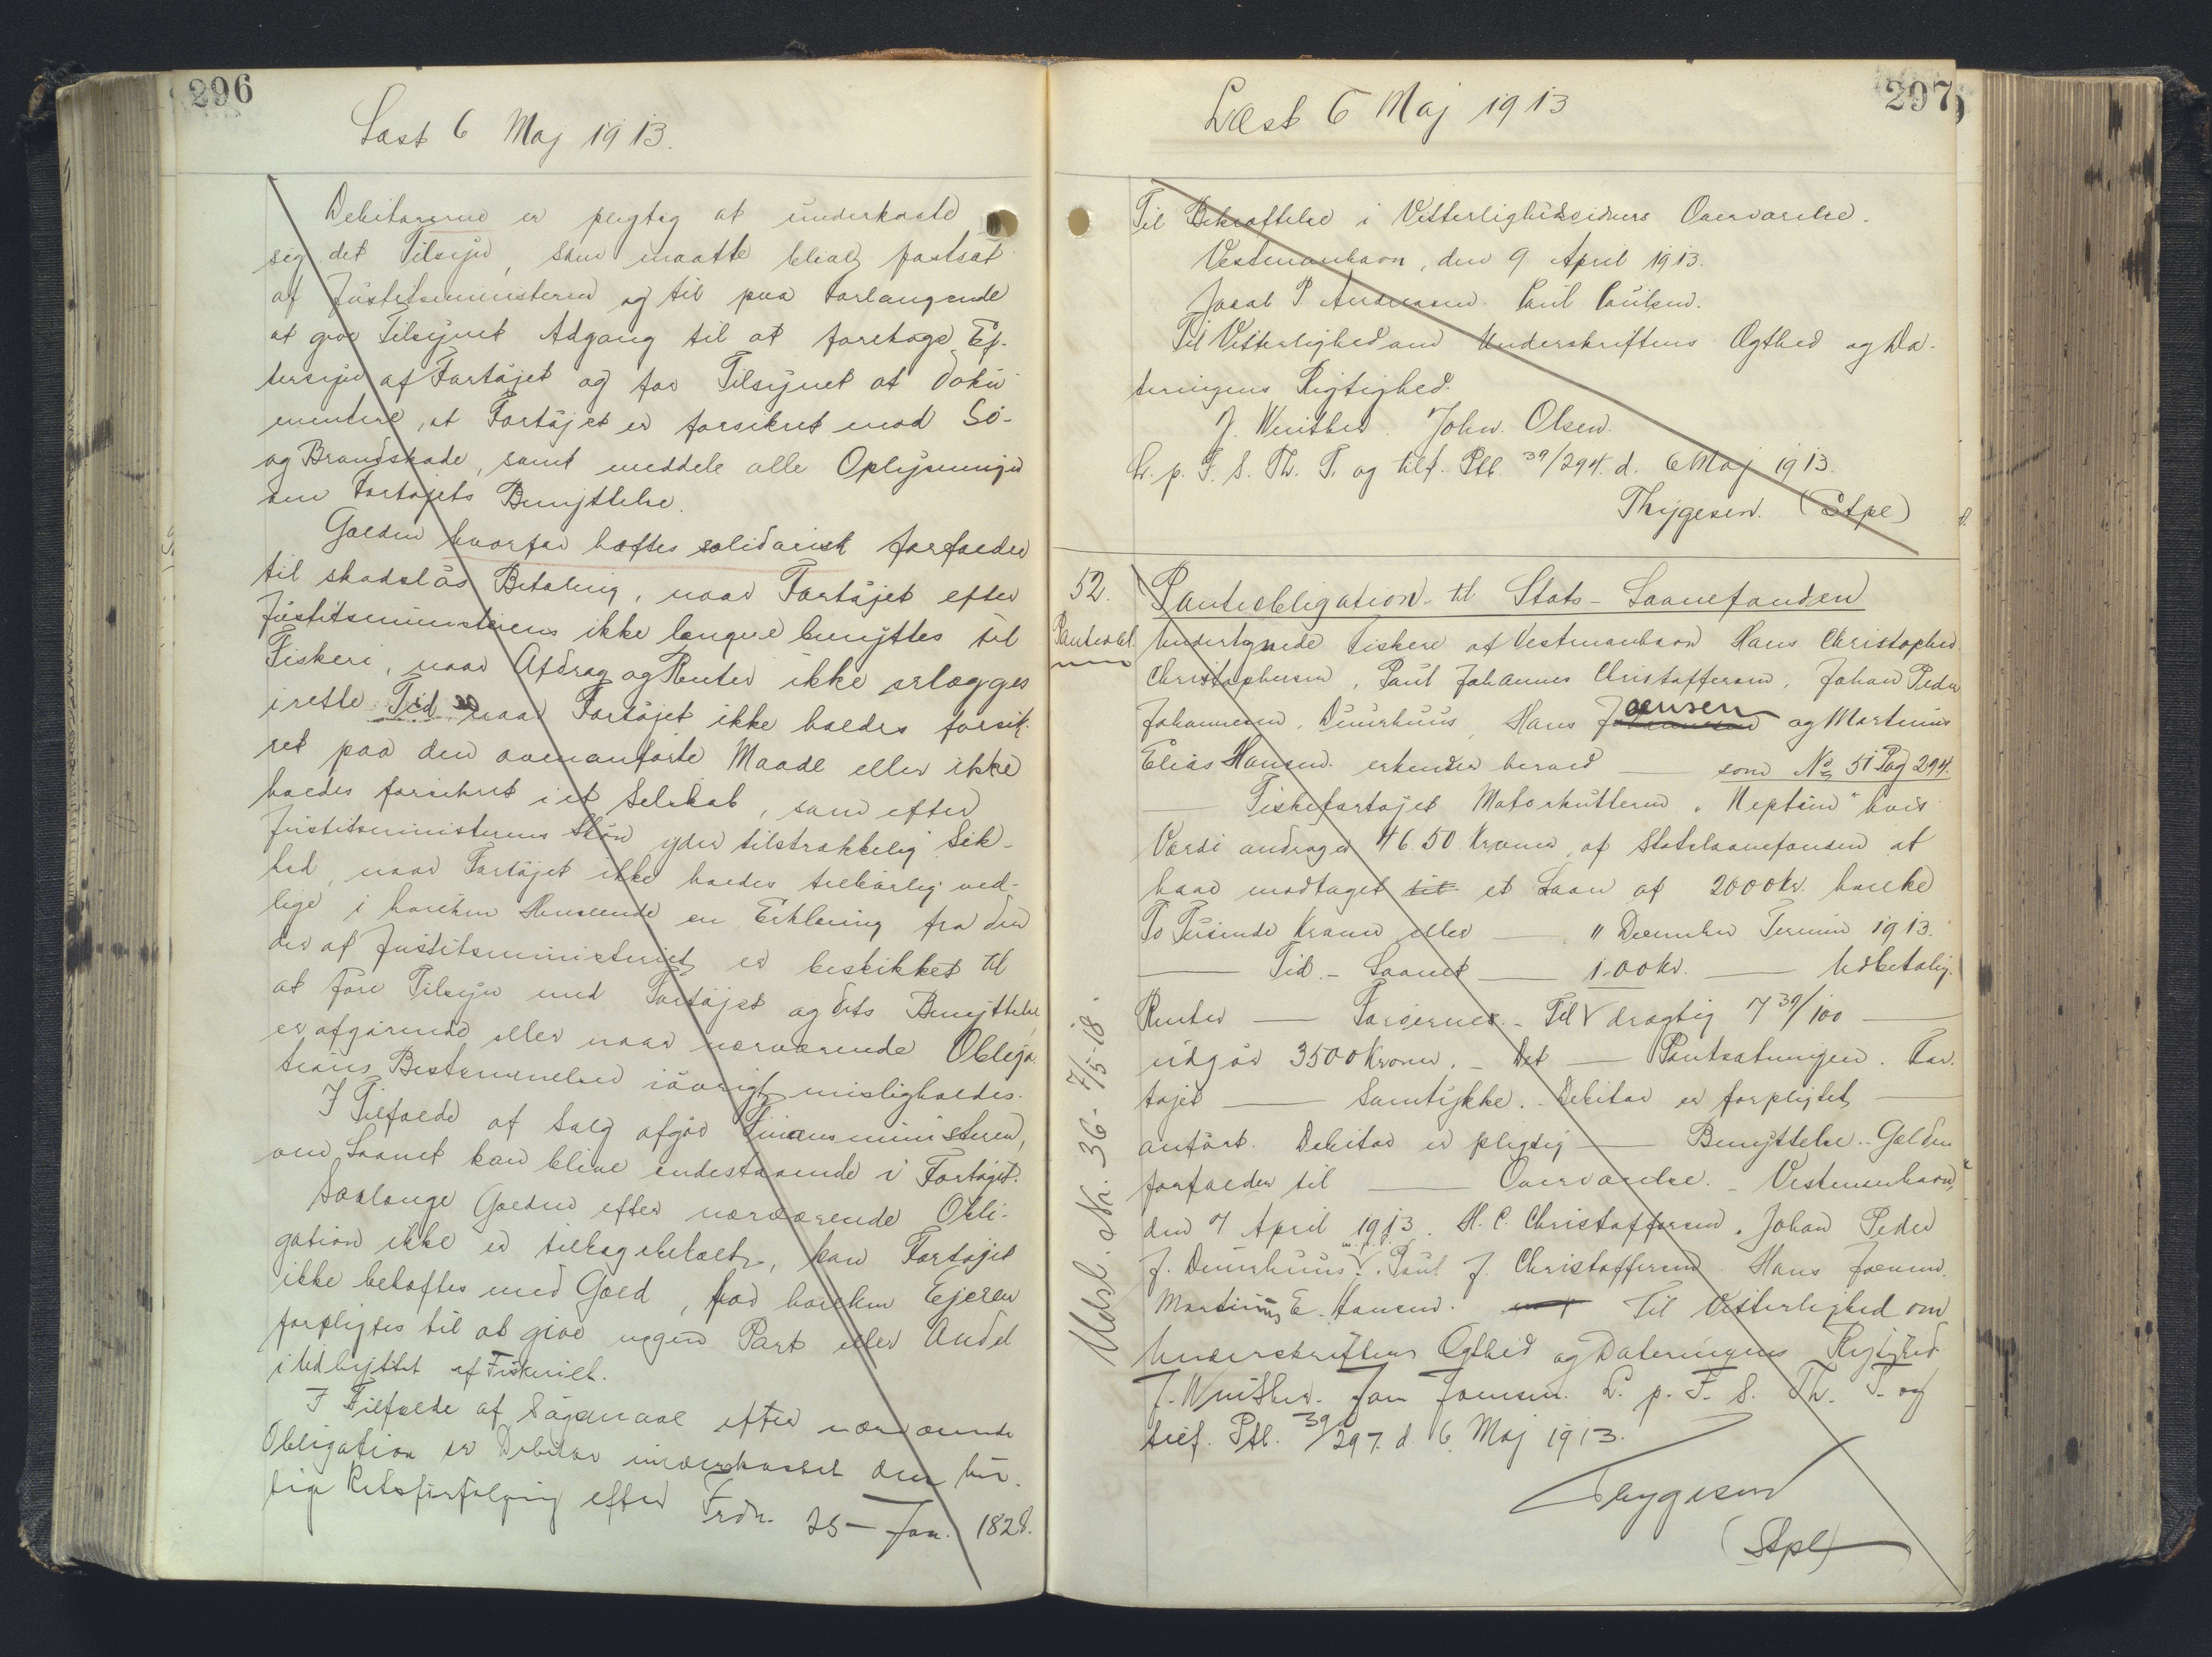 296
Læst 6 Maj 1913.
Debitorerne er pligtig at underkaste
sig det Tilsyn, som maatte blive fastsat
af Justitsministeren og til paa Forlangende
at give Tilsynet Adgang til at foretage Ef-
tersyn af Fartøjet og for Tilsynet at doku
mentere, at Fartøjet er forsikret mod Sø-
og Brandskade, samt meddele alle Oplysninger
om Fartøjets Benyttelse.
Gælden hvorfor hæftes solidarisk forfalder
til skadesløs Betaling, naar Fartøjet efter
Justitsministerens ikke længere benyttes til
Fiskeri, naar Afdrag og Renter ikke erlægges
i rette Tid naar Fartøjet ikke holdes forsik-
ret paa den ovenanførte Maade eller ikke
holdes forsikret i et Selskab, som efter
Justitsministerens Skøn yder tilstrækkelig Sik-
hed, naar Fartøjet ikke holdes tilbørlig ved-
lige i hvilken Henseende en Erklæring fra den
der af Justitsministeriet er beskikket til
at føre Tilsyn med Fartøjet og dets Benyttelse
er afgørende eller naar nærværende Obliga
tions Bestemmelser iøvrigt misligholdes.
I Tilfælde af Salg afgør Finansministeren,
om Laanet kan blive indestaaende i Fartøjet.
Saalænge Gælden efter nærværende Obli-
gation ikke er tilbagebetalt, kan Fartøjet
ikke behæftes med Gæld, for hvilken Ejeren
forpligtes til at give nogen Part eller Andel
i Udbyttet af Fiskeriet.
I Tilfælde af Søgsmaal efter nærværende
Obligation er Debitor underkastet den hur-
tige Retsforfølgning efter Frdn. 25 - Jan. 1828.
297
Læst 6 Maj 1913
Til Bekræftelse i Vitterlighedsvidners Overværelse.
Vestmanhavn, den 9 April 1913.
Jacob P Andreasen. Poul Poulsen.
Til Vitterlighed om Underskriftens Ægthed og Da-
teringens Rigtighed.
J. Winther. John. Olsen.
L. p. F. S. Th. T. og tilf. Ptb. 39/294. d. 6 Maj 1913.
Thygesen. (Stpl)
52. Panteobligation til Stats-Laanefonden
Panteobl. Undertegnede Fiskere af Vestmanhavn Hans Christopher
Christophersen, Poul Johannes Christoffersen, Johan Peder
Johannesen, Duurhuus, Hans Joensen og Martinus
Elias Hansen. erkender herved — som No 51 Pag 294.
— Fiskefartøjet Motorkutteren "Neptun" hvis
Værdi andrager 4650 Kroner, af Statslaanefonden at
have modtaget til et Laan af 2000 Kr. hvilke
To Tusinde Kroner eller — 11 December Termin 1913.
— Tid. - Laanet — 100 kr. — Udbetaling.
Renter — Færøerne. - Til V drægtig 7 39/100 —
udgør 3500 Kroner. - Det — Pantsætningen. Far-
tøjet — Samtykke. - Debitor er forpligtet —
anført. Debitor er pligtig — Benyttelse. - Gælden
forfalder til — Overværelse. - Vestmanhavn,
den 7 April 1913. H. C. Christoffersen. Johan Peder
m. p. P.
J. Duurhuus V. Poul J. Christoffersen. Hans Joensen.
Martinus E. Hansen. Til Vitterlighed om
Underskriftens Ægthed og Dateringens Rigtighed
J. Winther. Jon Joensen. L. p. F. S. Th. T. og
tilf. Ptb. 39/297. d 6. Maj 1913.
Thygesen
(Stpl)
Udsl. Nr. 36. 7/5-18.